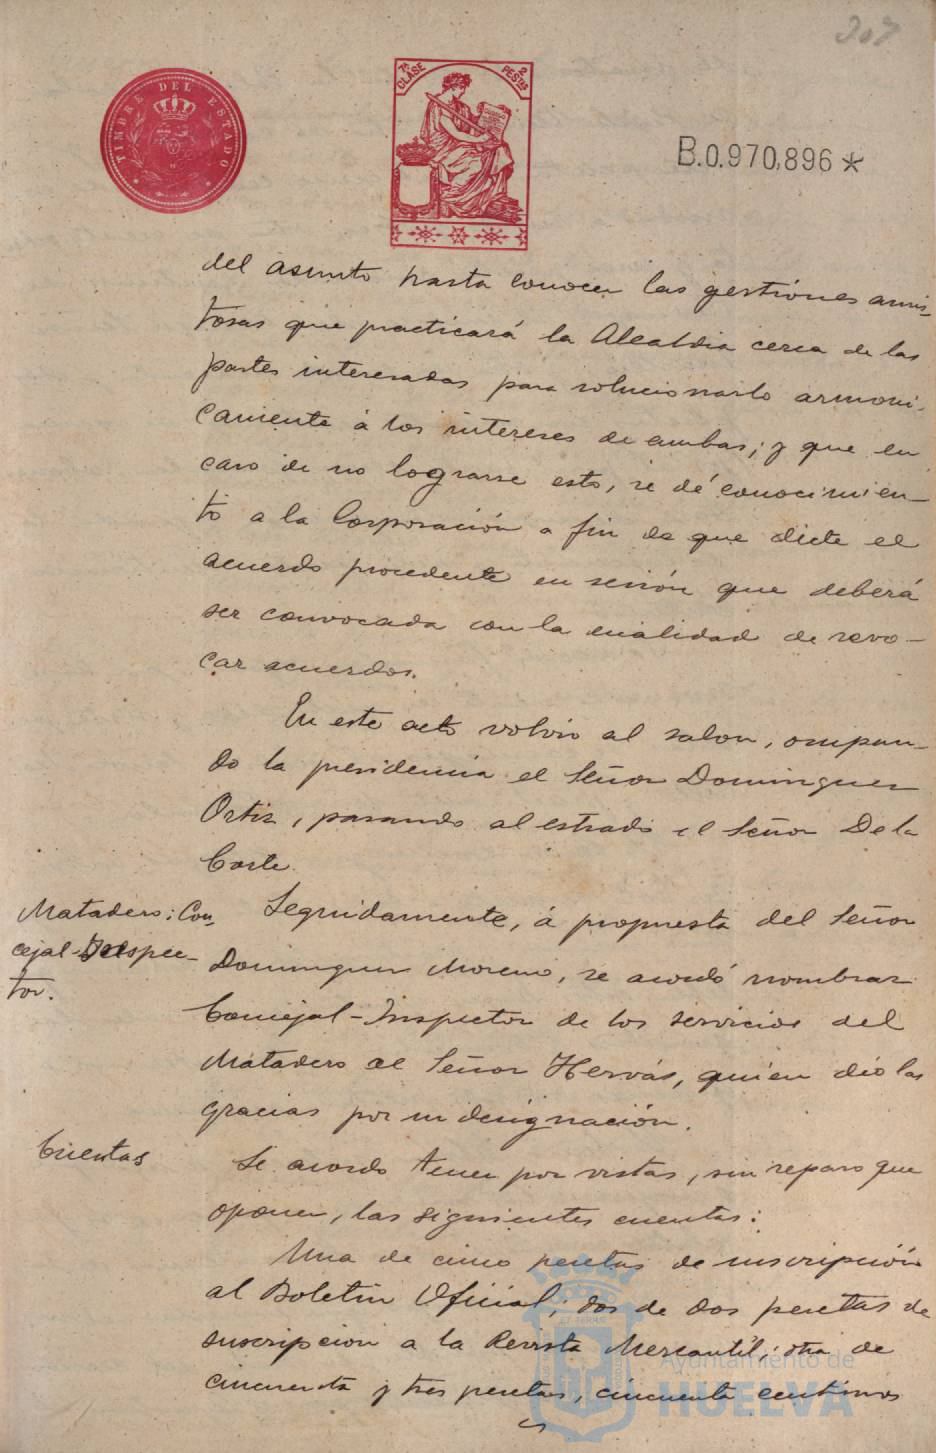 307
TIMBRE DEL ESTADO
7ª CLASE 2 PESTAS
B.0.970,896 *
del asunto hasta conocer las gestiones amis-
tosas que practicará la Alcaldia cerca de las
partes interesadas para solucionarlo armoni-
camente á los intereses de ambas; y que en
caso de no lograrse esto, se dé conocimien-
to a la Corporación a fin de que dicte el
acuerdo procedente en sesión que deberá
ser convocada con la cualidad de revo-
car acuerdos.
En este acto volvio al salon, ocupan-
do la presidencia el Señor Dominguez
Ortiz, pasando al estrado el Señor De la
Corte.
Matadero: Con-
cejal-Inspec-
tor.
Seguidamente, á propuesta del Señor
Dominguez Moreno, se acordó nombrar
Concejal-Inspector de los servicios del
Matadero al Señor Hervás, quien dió las
gracias por su designación.
Cuentas
Se acordo tener por vistas, sin reparo que
oponer, las siguientes cuentas:
Una de cinco pesetas de suscripción
al Boletin Oficial; dos de dos pesetas de
suscripcion a la Revista Mercantil; otra de
cincuenta y tres pesetas, cincuenta centimos
Ayuntamiento de
HUELVA